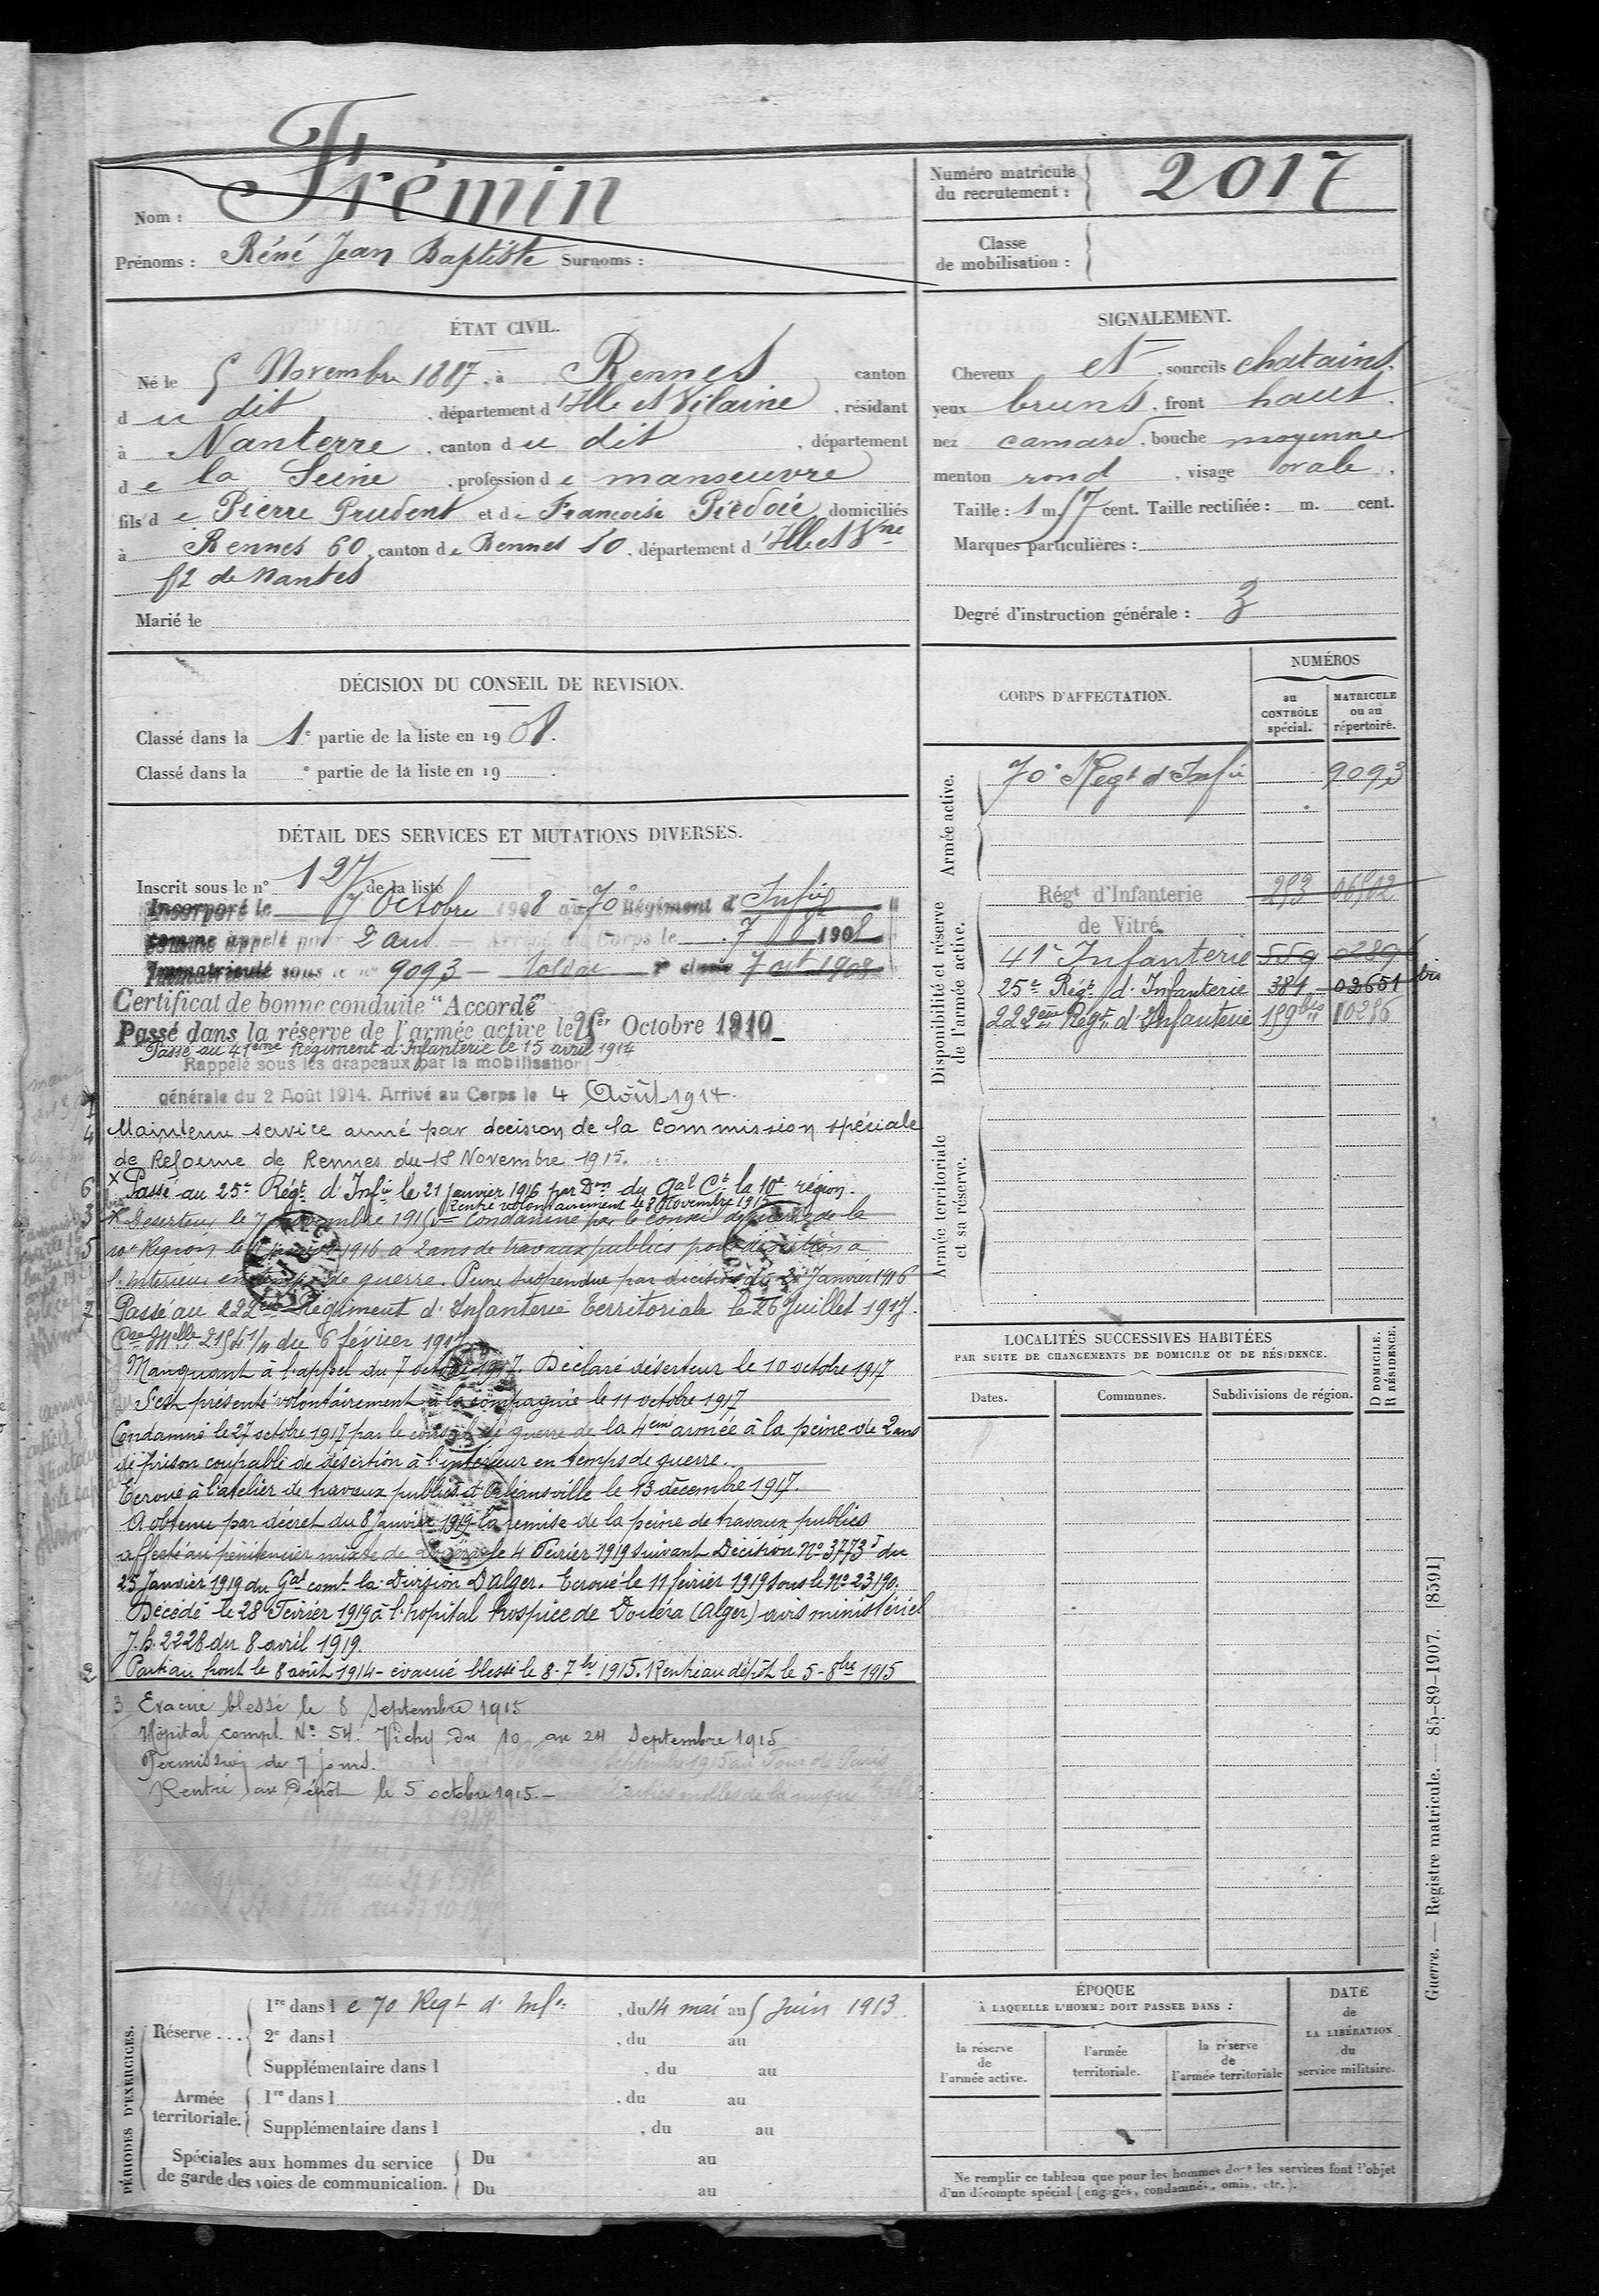 Frémin
Nom :
Prénoms : Réné Jean Baptiste Surnoms :
Numéro matricule
du recrutement : 2017
Classe
de mobilisation :
ÉTAT CIVIL.
Né le 5 Novembre 1887, à Rennes canton
du dit, département d'Ille et Vilaine, résidant
à Nanterre, canton du dit, département
de la Seine, profession de manoeuvre
fils de Pierre Prudent et de Francoise Piedoie domiciliés
à Rennes 60, canton de Rennes SO, département d'Ille et Vne
52 de Nantes
Marié le
SIGNALEMENT.
Cheveux et, sourcils chatains.
yeux bruns, front haut.
nez camard, bouche moyenne
menton rond, visage ovale.
Taille : 1 m. 57 cent. Taille rectifiée : m. cent.
Marques particulières :
Degré d'instruction générale : 3
DÉCISION DU CONSEIL DE REVISION.
Classé dans la 1e partie de la liste en 1908.
Classé dans la e partie de la liste en 19 .
DÉTAIL DES SERVICES ET MUTATIONS DIVERSES.
Inscrit sous le n° 127 de la liste
Incorporé le 7 Octobre 1908 au 70e Régiment d'Infie
comme appelé pour 2 ans Arrivé au Corps le 7 8bre 1908
Immatriculé sous le n° 9093 — Soldat 2e classe 7 oct 1908
Certificat de bonne conduite "Accordé"
Passé dans la réserve de l'armée active le 25 Octobre 1910
Passé au 41ème Régiment d'Infanterie le 15 avril 1914
Rappelé sous les drapeaux par la mobilisation
1 générale du 2 Août 1914. Arrivé au Corps le 4 Août 1914.
4 Maintenu service armé par décision de la Commission spéciale
de Reforme de Rennes du 18 Novembre 1915.
6 X Passé au 25e Régt d'Infie le 21 janvier 1916 par Don du Gal Ct la 10e région.
rentré volontairement le 8 Novembre 1915
3 X Deserteur le 7 novembre 1915 Condamné par le conseil de guerre de la
5 10e Région le janvier 1916 a 2 ans de travaux publics pour désertion a
l'interieur en temps de guerre. Peine suspendue par décision du 20 Janvier 1916
7 Passé au 222ème Régiment d'Infanterie Territoriale le 26 Juillet 1917.
Cre Mlle 21541/11 du 6 février 1917
Manquant à l'appel du 7 octobre 1917. Déclaré déserteur le 10 octobre 1917
S'est présenté volontairement à la compagnie le 11 octobre 1917
Condamné le 27 octobre 1917 par le conseil de guerre de la 4eme armée à la peine de 2 ans
de prison coupable de désertion à l'interieur en temps de guerre.
Ecroué à l'atelier de travaux publics d'Orléansville le 13 décembre 1917.
A obtenu par décret du 8 Janvier 1919 la remise de la peine de travaux publics
affecté au pénitencier mixte de le 4 Février 1919 suivant Décision No 3773 I du
25 Janvier 1919 du Gal comt la Division D'alger. Ecroué le 11 février 1919 sous le No 23190.
Décédé le 28 Février 1919 à l'hopital hospice de Douéra (Alger) avis ministériel
J.B. 2228 du 8 avril 1919.
2 Parti au front le 8 août 1914 - évacué blessé le 8-7bre 1915. Rentré au dépôt le 5-8bre 1915
3 Evacué blessé le 8 Septembre 1915
Hôpital compl. No 54. Vichy du 10 au 24 Septembre 1915
Permission de 7 jours.
Rentré au Dépôt le 5 octobre 1915.—
CORPS D'AFFECTATION.
NUMÉROS
au CONTRÔLE spécial.
MATRICULE ou au répertoire.
Armée active.
70e Regt d'Infie 9093
Disponibilité et réserve de l'armée active.
Régt d'Infanterie 253 06502
de Vitré.
41e Infanterie 559 02896
25e Régt d'Infanterie 384 02651 bis
222ème Régt d'Infanterie 159bis 10286
Armée territoriale et sa réserve.
LOCALITÉS SUCCESSIVES HABITÉES
PAR SUITE DE CHANGEMENTS DE DOMICILE OU DE RÉSIDENCE.
Dates. Communes. Subdivisions de région.
D DOMICILE.
R RÉSIDENCE.
PÉRIODES D'EXERCICES.
Réserve ... 1re dans le 70 Regt d'Infie, du 14 mai au 5 Juin 1913
2e dans l , du au
Supplémentaire dans l , du au
Armée territoriale. 1re dans l , du au
Supplémentaire dans l , du au
Spéciales aux hommes du service
de garde des voies de communication. Du au
Du au
ÉPOQUE
À LAQUELLE L'HOMME DOIT PASSER DANS :
la réserve de l'armée active.
l'armée territoriale.
la réserve de l'armée territoriale
DATE de LA LIBÉRATION du service militaire.
Ne remplir ce tableau que pour les hommes dont les services font l'objet
d'un décompte spécial (engagés, condamnés, omis, etc.).
Guerre. — Registre matricule. — 85-89-1907. [8591]